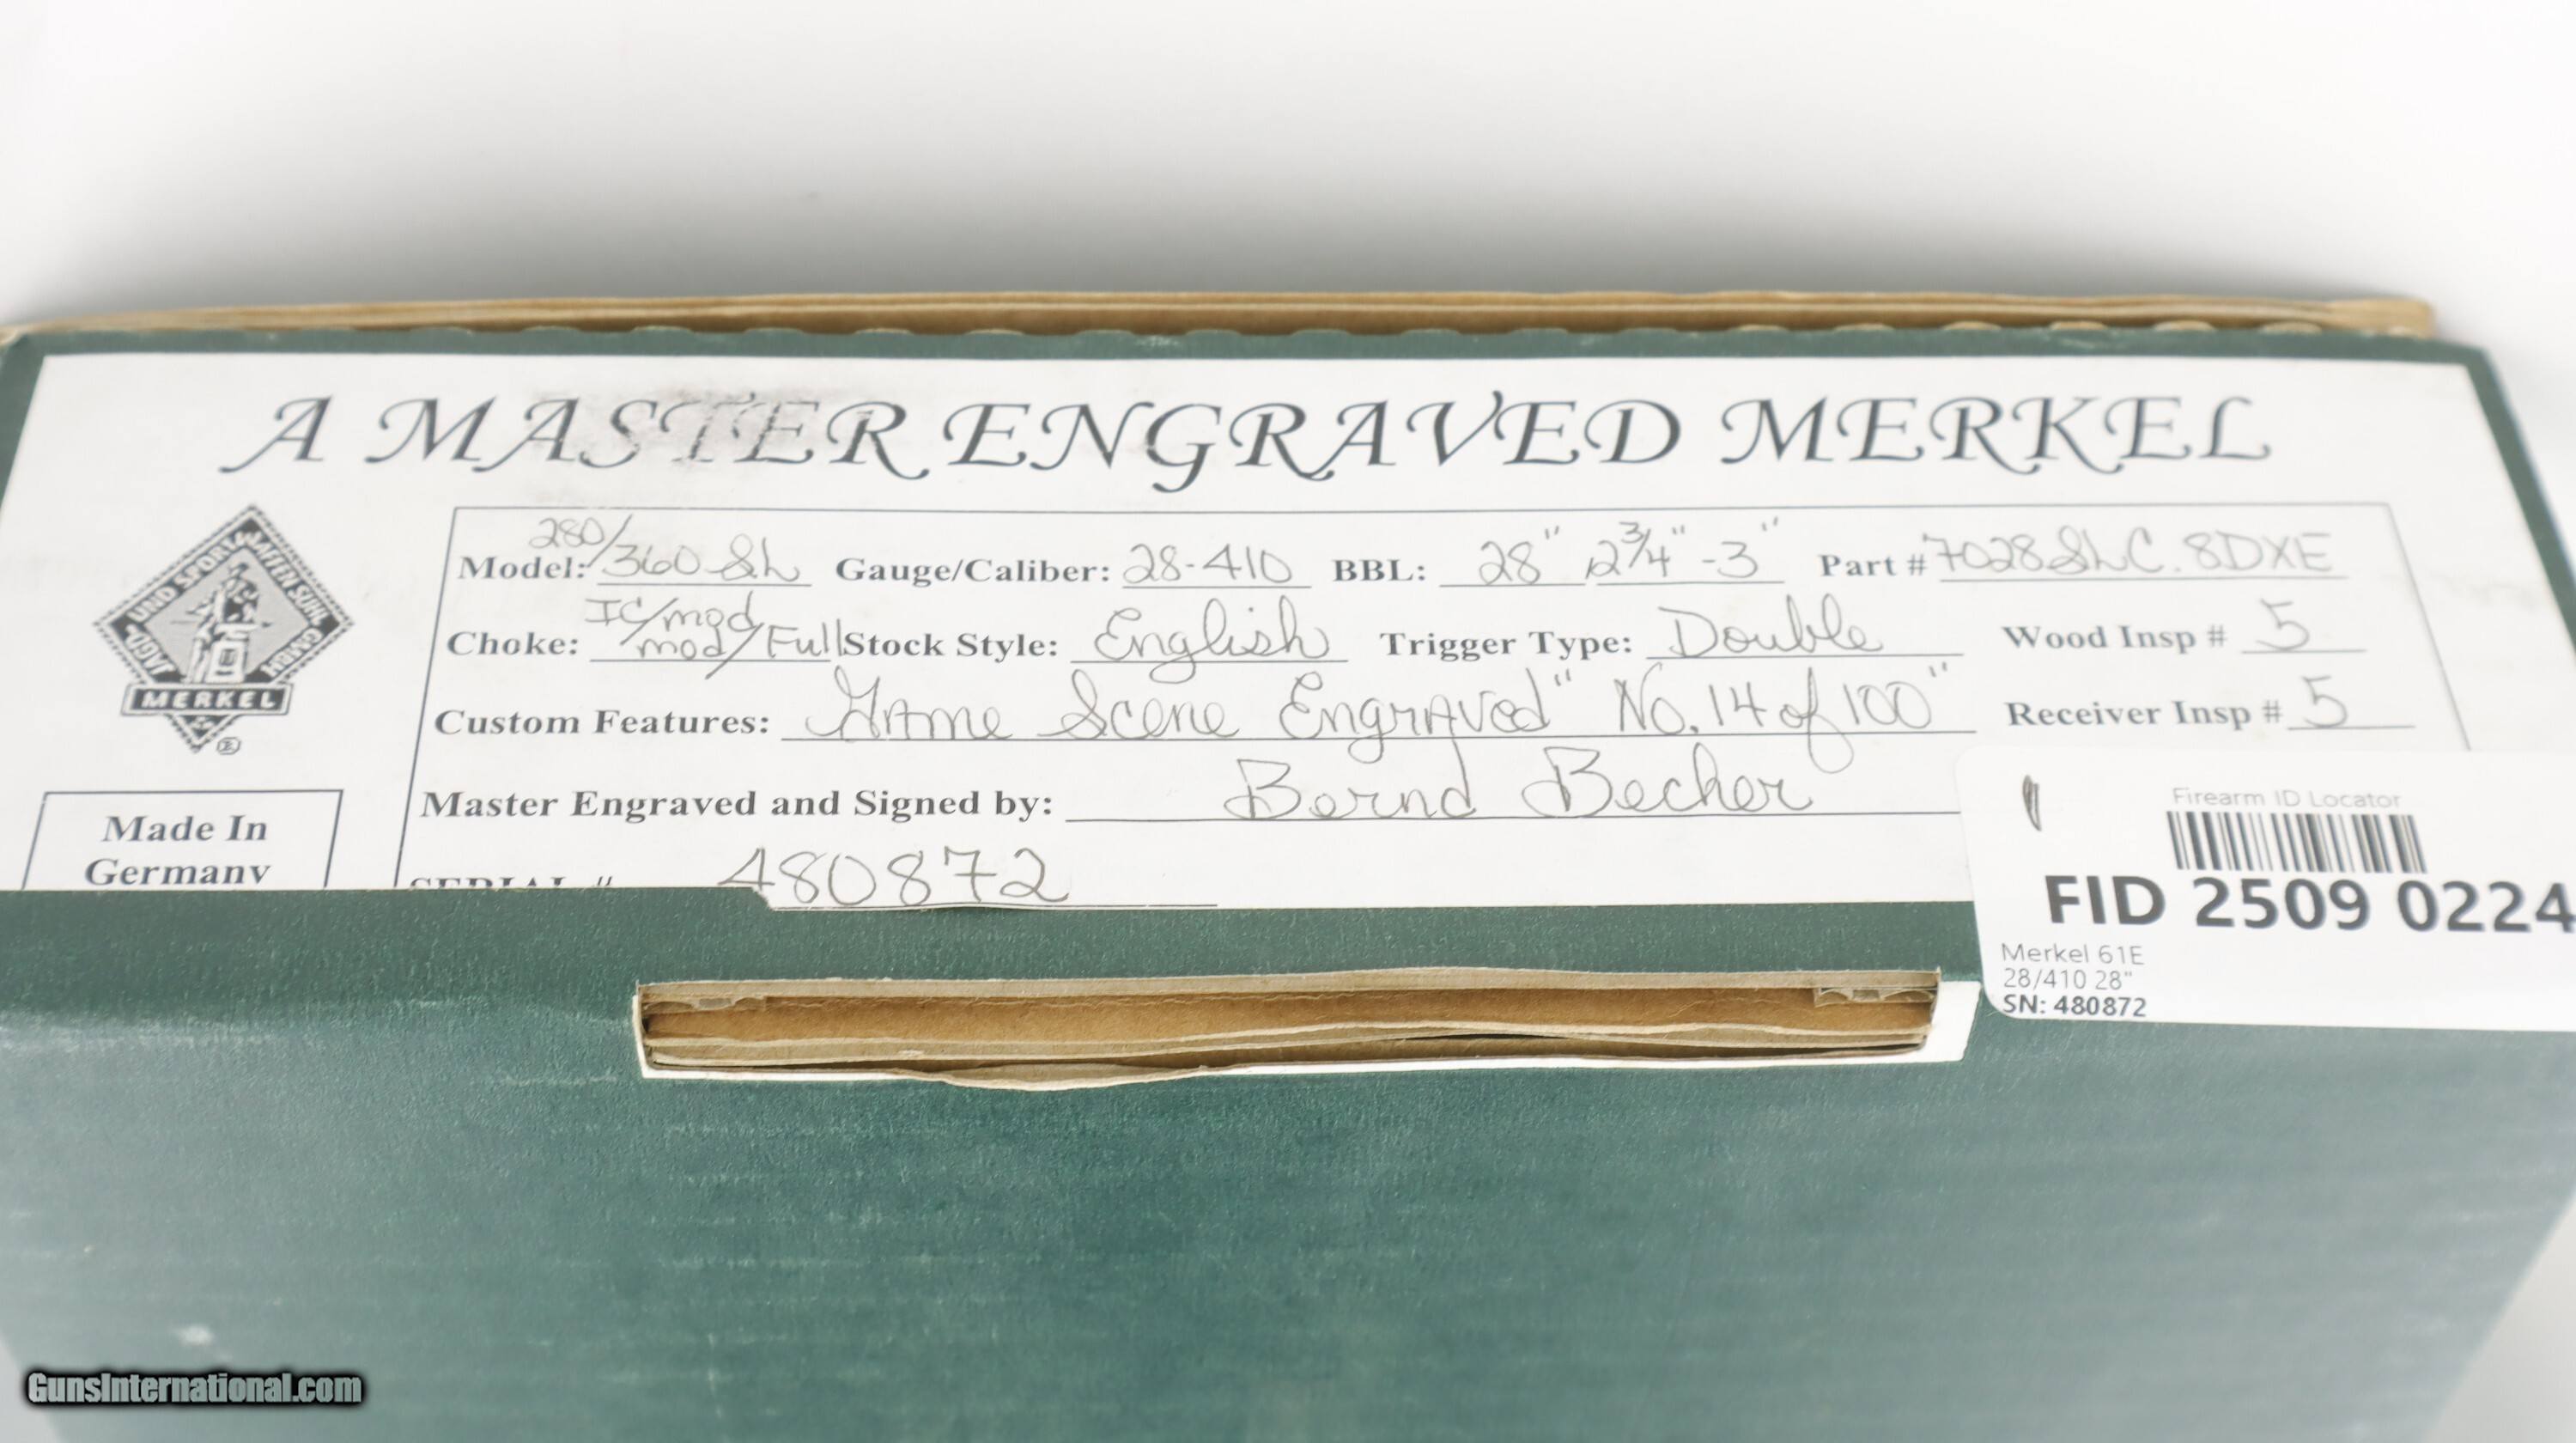 A MASTER ENGRAVED MERKEL
JAGD UND SPORTWAFFEN SUHL GMBH
MERKEL
®
Made In
Germany
Model: 280/360 SL Gauge/Caliber: 28-410 BBL: 28" 2 3/4" - 3" Part # 7028SLC.8DXE
Choke: IC/mod mod/Full Stock Style: English Trigger Type: Double Wood Insp # 5
Custom Features: Game Scene Engraved "No. 14 of 100" Receiver Insp # 5
Master Engraved and Signed by: Bernd Becher
SERIAL # 480872
Firearm ID Locator
FID 2509 0224
Merkel 61E
28/410 28"
SN: 480872
GunsInternational.com